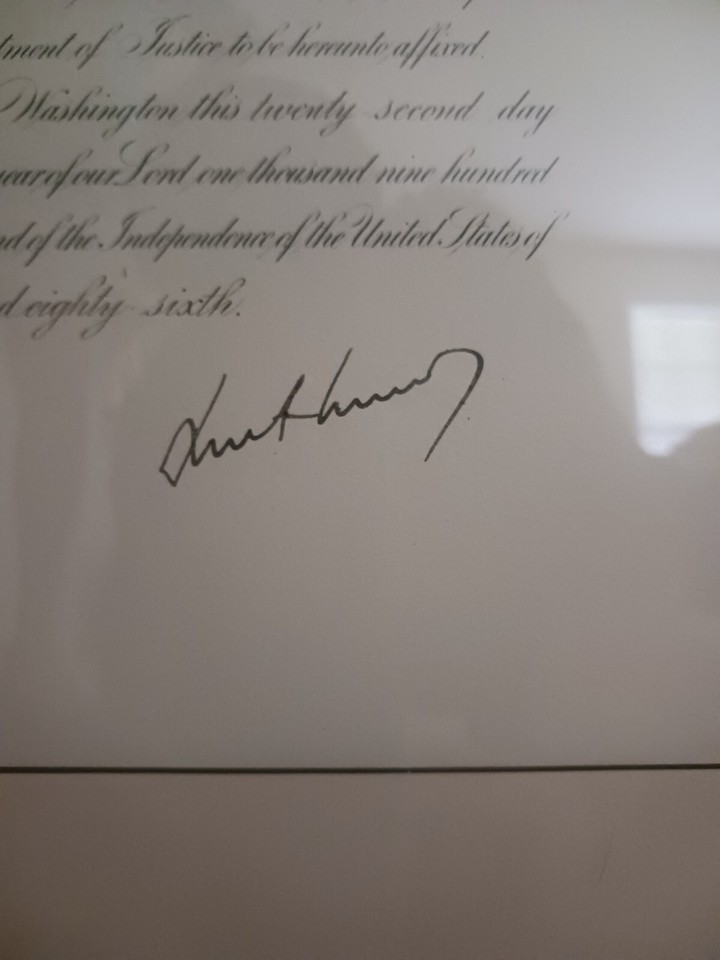 tment of Justice to be hereunto affixed.
Washington this twenty-second day
year of our Lord one thousand nine hundred
nd of the Independence of the United States of
d eighty-sixth.